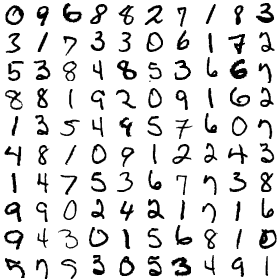 0 9 6 8 8 2 7 1 8 3
3 1 7 3 3 0 6 1 7 2
5 3 8 4 8 5 3 6 6 7
8 8 1 9 2 0 9 1 6 2
1 3 5 4 9 5 7 6 0 7
4 8 1 0 9 1 2 2 4 3
1 4 7 5 3 6 7 7 3 8
9 9 0 2 4 2 1 7 1 6
9 4 3 0 1 5 6 8 1 0
5 7 5 3 0 5 3 4 9 1